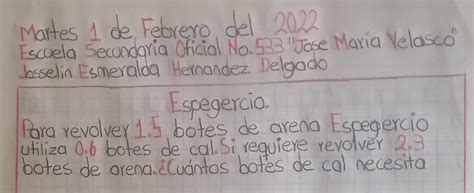 Martes 1 de Febrero del 2022
Escuela Secundaria Oficial No.533 "Jose Maria Velasco"
Josselin Esmeralda Hernandez Delgado
Espegercio.
Para revolver 1.5 botes de arena Espegercio
utiliza 0.6 botes de cal.Si requiere revolver 2.3
botes de arena.¿Cuántos botes de cal necesita